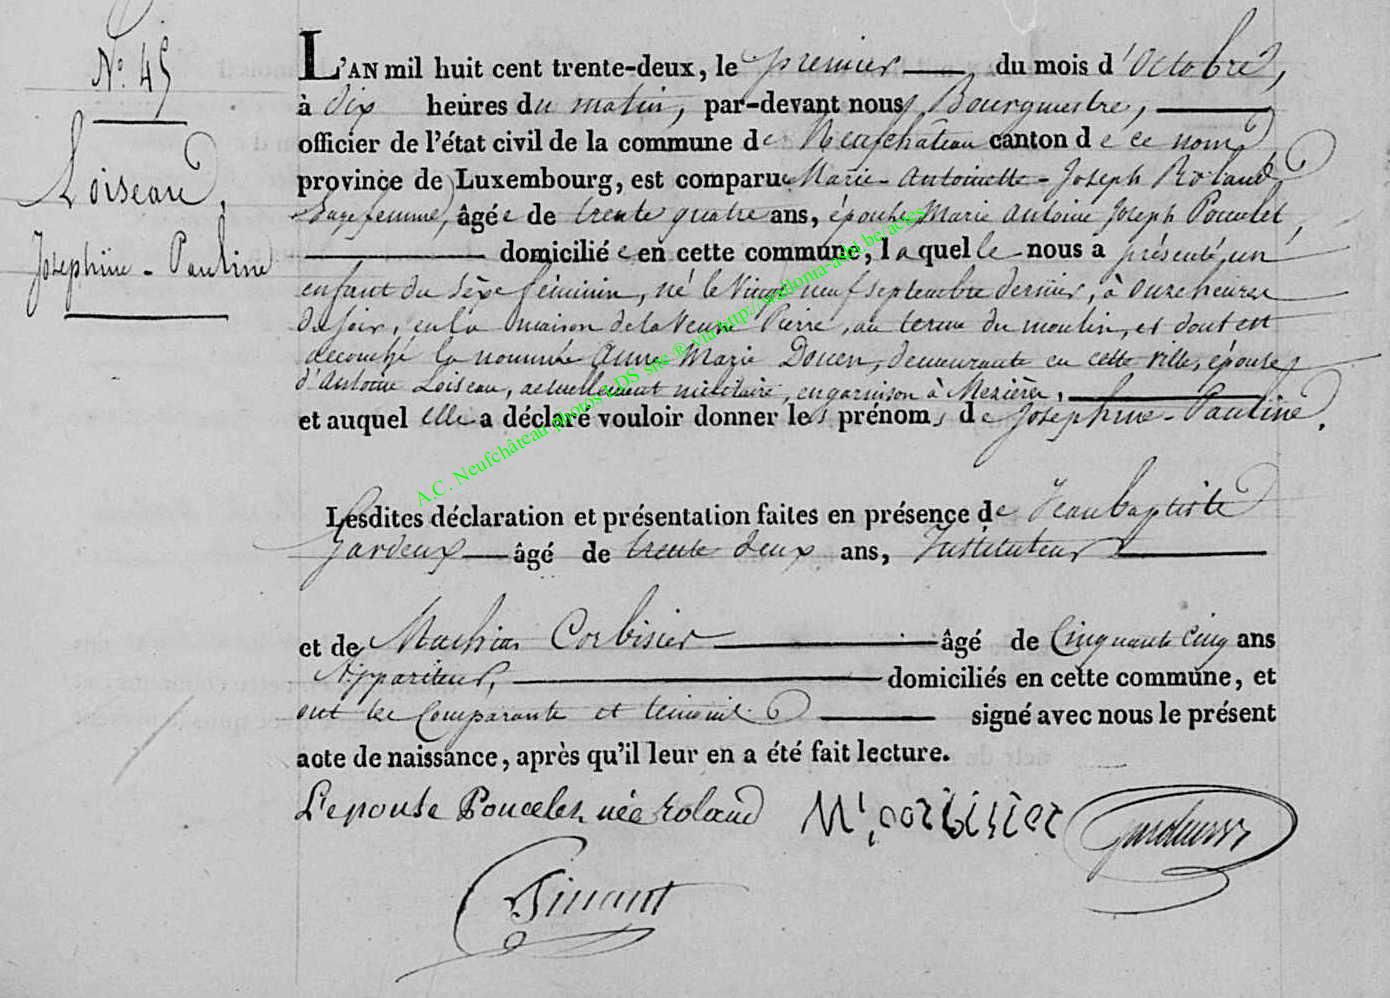 N.o 45
Loiseau,
Josephine - Pauline
L'AN mil huit cent trente-deux, le premier du mois d'Octobre,
à dix heures du matin, par-devant nous Bourgmestre,
officier de l'état civil de la commune de Neufchâteau canton de ce nom
province de Luxembourg, est comparue Marie-Antoinette-Joseph Roland
Sage femme, âgée de trente quatre ans, épouse Marie Antoine Joseph Poncelet,
domiciliée en cette commune, laquelle nous a présenté un
enfant du sèxe féminin, né le Vingt neuf septembre dernier, à onze heures
du soir, en la maison de la Veuve Pierre, au terme du moulin, et dont est
accouché la nommée Anne Marie Douen, demeurante en cette ville, épouse
d'Antoine Loiseau, actuellement militaire, en garnison à Mezières,
et auquel elle a déclaré vouloir donner les prénoms de Josephine-Pauline.
Lesdites déclaration et présentation faites en présence de Jean baptiste
Gardeux âgé de trente deux ans, Instituteur
et de Mathias Corbisier âgé de Cinquante cinq ans
Appariteur, domiciliés en cette commune, et
ont les Comparante et témoins signé avec nous le présent
acte de naissance, après qu'il leur en a été fait lecture.
L'epouse Poncelez née Roland Mt. corbisier Gardeux
Pinant
A.C. Neufchâteau photos LDS site ® via http://wallonia-asbl.be/actes